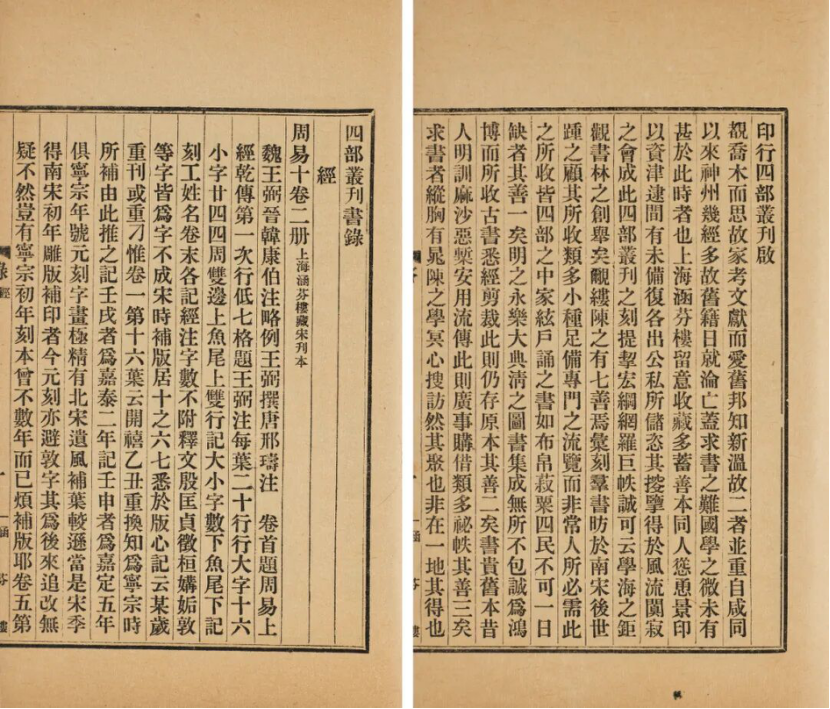 印行四部叢刊啟
覩喬木而思故家考文獻而愛舊邦知新溫故二者並重自咸同
以來神州幾經多故舊籍日就淪亡蓋求書之難國學之微未有
甚於此時者也上海涵芬樓留意收藏多蓄善本同人慫恿景印
以資津逮間有未備復各出公私所儲恣其搜擥得於風流闃寂
之會成此四部叢刊之刻提挈宏綱網羅巨帙誠可云學海之鉅
觀書林之創舉矣覼縷陳之有七善焉彙刻羣書昉於南宋後世
踵之顧其所收類多小種足備專門之流覽而非常人所必需此
之所收皆四部之中家絃戶誦之書如布帛菽粟四民不可一日
缺者其善一矣明之永樂大典清之圖書集成無所不包誠爲鴻
博而所收古書悉經剪裁此則仍存原本其善二矣書貴舊本昔
人明訓麻沙惡槧安用流傳此則廣事購借類多祕帙其善三矣
求書者縱胸有晁陳之學冥心搜訪然其聚也非在一地其得也
四部叢刊書錄
經
周易十卷二册 上海涵芬樓藏宋刊本
魏王弼晉韓康伯注略例王弼撰唐邢璹注 卷首題周易上
經乾傳第一次行低七格題王弼注每葉二十行行大字十六
小字廿四四周雙邊上魚尾上雙行記大小字數下魚尾下記
刻工姓名卷末各記經注字數不附釋文殷匡貞徵桓媾姤敦
等字皆爲字不成宋時補版居十之六七悉於版心記云某歲
重刊或重刁惟卷一第十六葉云開禧乙丑重換知爲寧宗時
所補由此推之記壬戌者爲嘉泰二年記壬申者爲嘉定五年
俱寧宗年號元刻字畫極精有北宋遺風補葉較遜當是宋季
得南宋初年雕版補印者今元刻亦避敦字其爲後來追改無
疑不然豈有寧宗初年刻本曾不數年而已煩補版耶卷五第
經
一
涵芬樓